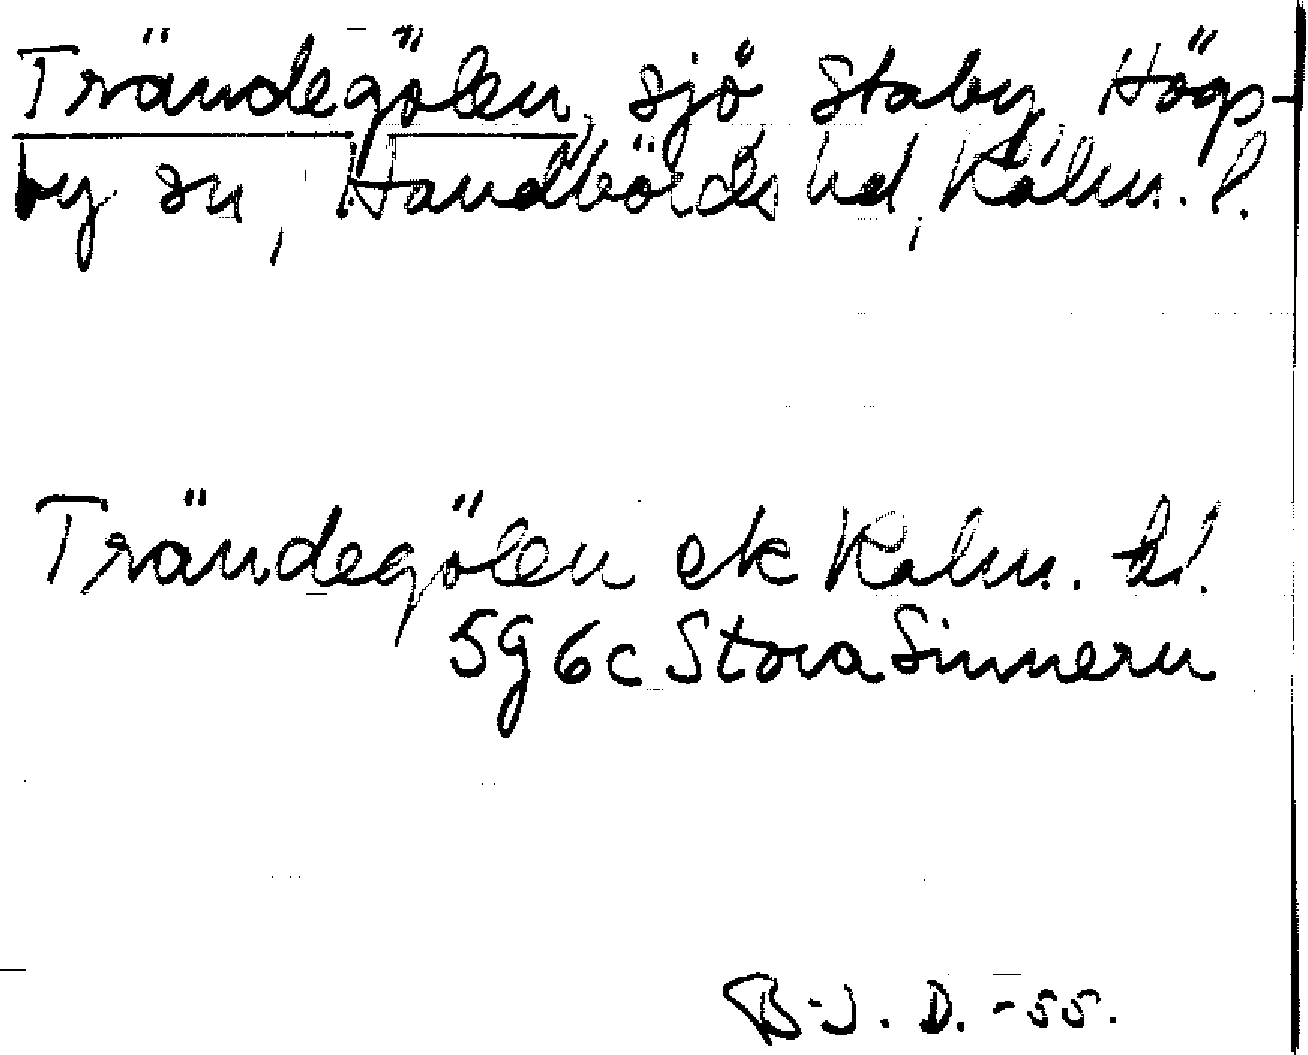 Trändegölen, sjö Staby, Högs-
by sn, Handbörds hd, Kalm. l.
Trändegölen ek Kalm. bl.
5g6c Stora Sinnern
B-J. D. -55.